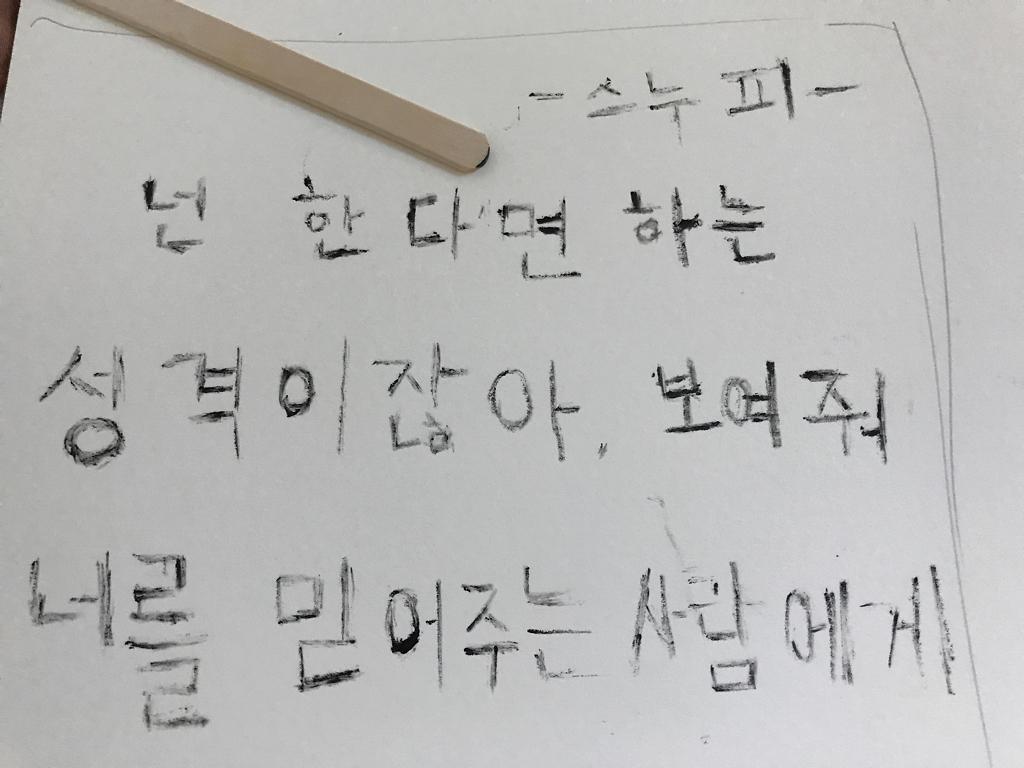 -스누피-
넌 한다면 하는
성격이잖아, 보여줘
너를 믿어주는 사람에게